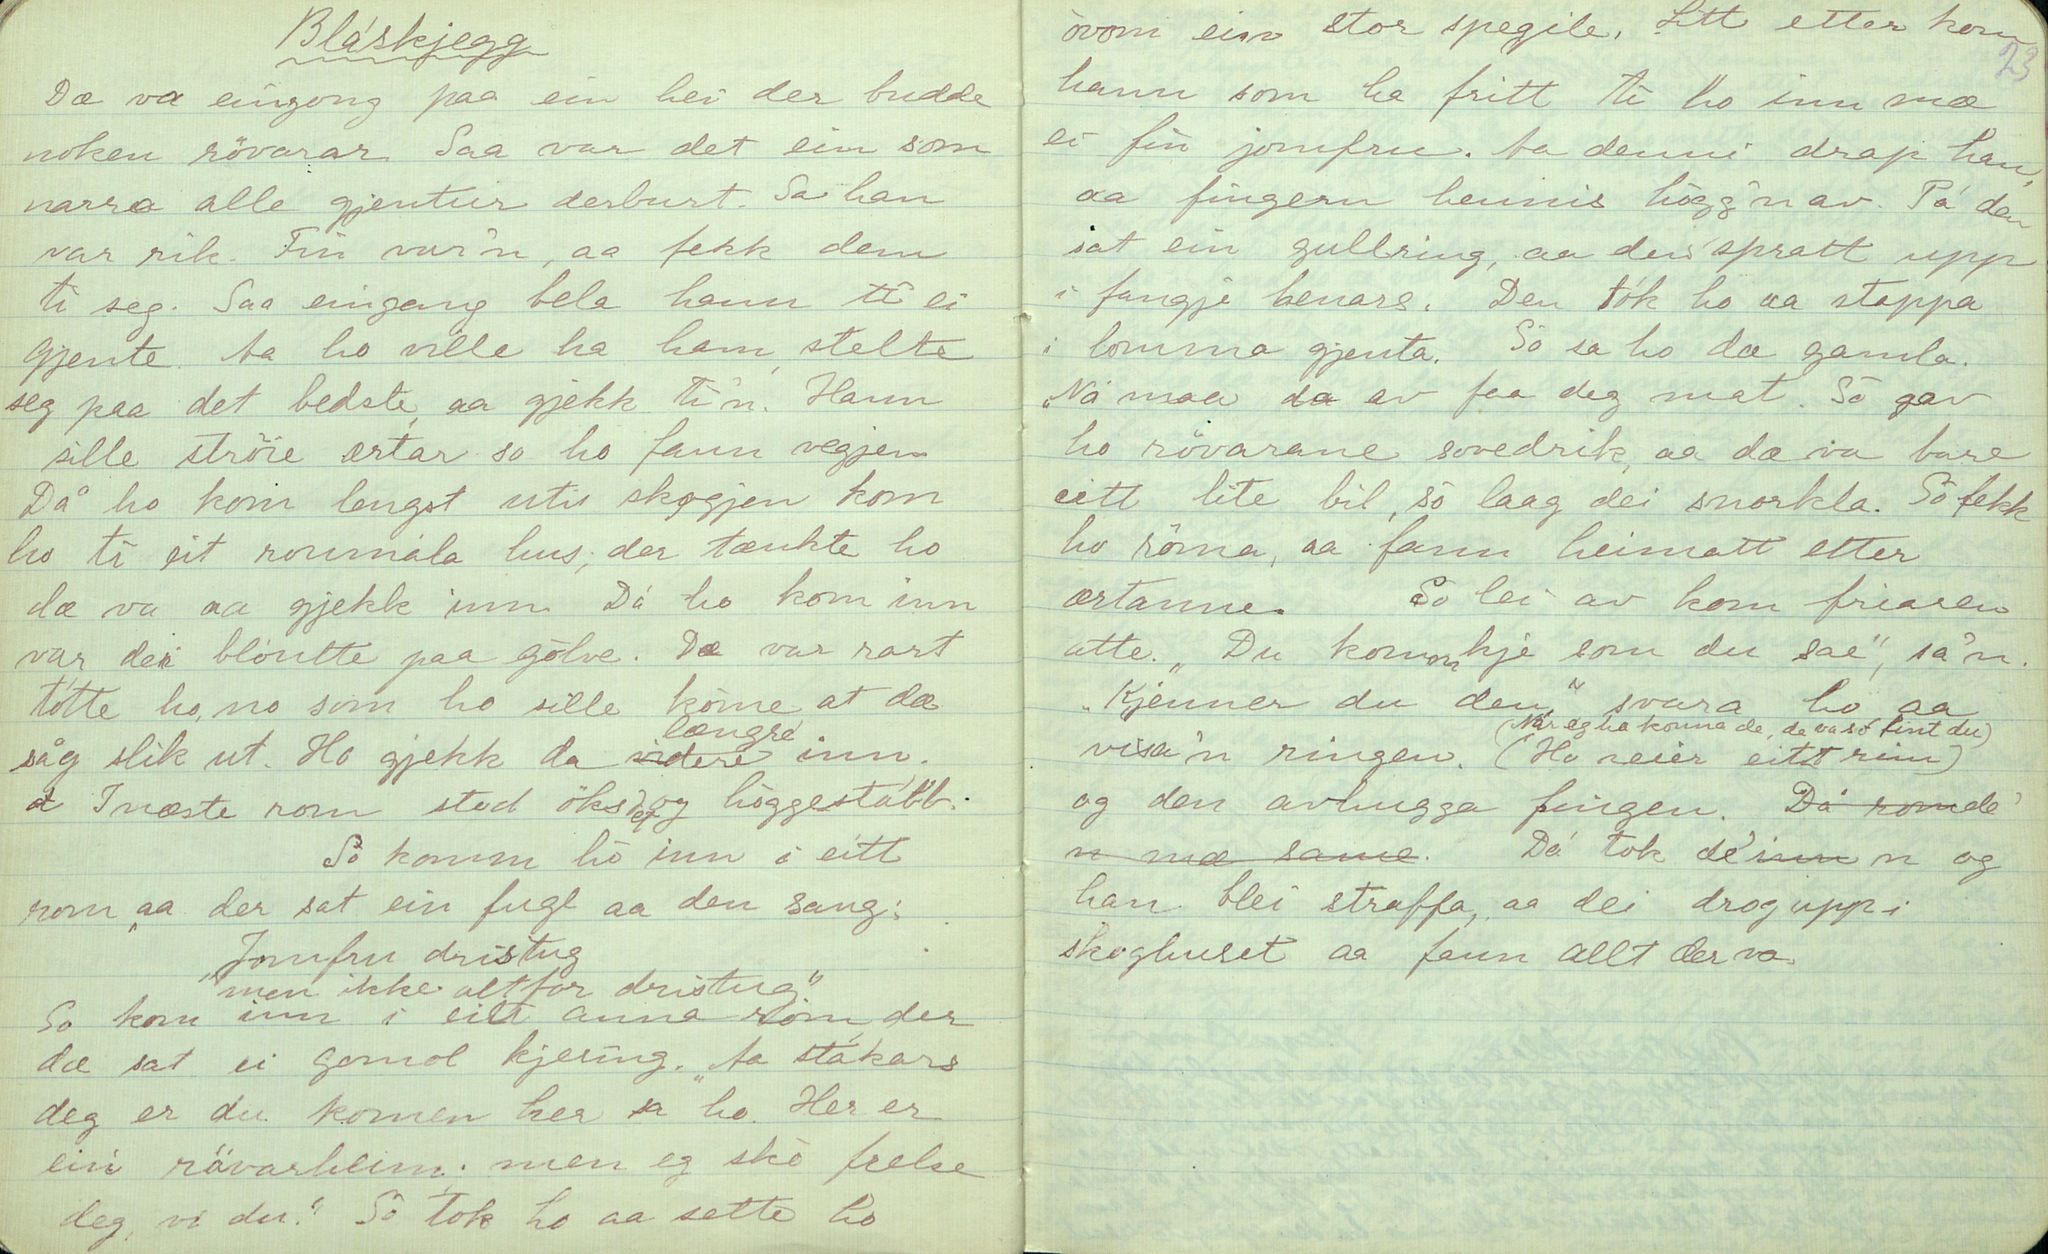 Bláskjegg
Dæ va eingong paa ein hei der budde
noken rövarar. Saa var det ein som
narra alle gjentur derburt. Sa han
var rik. Fin var'n, aa fekk dem
ti seg. Saa eingang bela hann ti ei
gjente. Aa ho ville ha ham, stelte
seg paa det bedste, aa gjekk ti'n. Hann
sille ströie ærtar so ho fann vegjen
Då ho kom lengst uti skogjen kom
ho ti eit roumála hus, der tænkte ho
dæ va aa gjekk inn. Dá ho kom inn
var dei bloutte paa gölve. Dæ var rart
totte ho, no som ho sille kòme at dæ
såg slik ut. Ho gjekk da videre længre inn.
I næste rom stod öks og höggestabb.
So komm ho inn i eitt
rom, aa der sat ein fugl aa den sang:
"Jomfru dristug
men ikke altfor dristug"
So kom inn i eitt anna rom, der
dæ sat ei gomol kjering. "Aa stákars
deg er du komen her sa ho. Her er
ein rövarheim; men eg skò frelse
deg, vi du." Sò tok ho aa sette ho
23
òvom ein stor spegile. Litt etter kom
hann som ha fritt ti ho inn mæ
ei fin jomfru. Aa denni drap han,
aa fingern hennis högg'n av. Pá den
sat ein gullring, aa den spratt upp
i fangje henars. Den tók ho aa stappa
i lomma gjenta. Sò sa ho dæ gamla.
"Ná maa da av faa deg mat. Sò gav
ho rövarane sovedrik, aa dæ va bare
eitt lite bil, sò laag dei snorkla. Sò fekk
ho röma, aa fann heimatt etter
ærtanne. So lei av kom friaren
atte. "Du kom kje som du sae", sa'n.
"Kjenner du den", svara ho aa
(Når eg ha konna de, da va só fint du)
visa'n ringen. (Ho neier eitt rim)
og den avhugga fingen. Dá kom de'
n mæ same. Dá tok de' inn n og
han blei straffa, aa dei drog upp i
skoghuset aa fann allt der va.